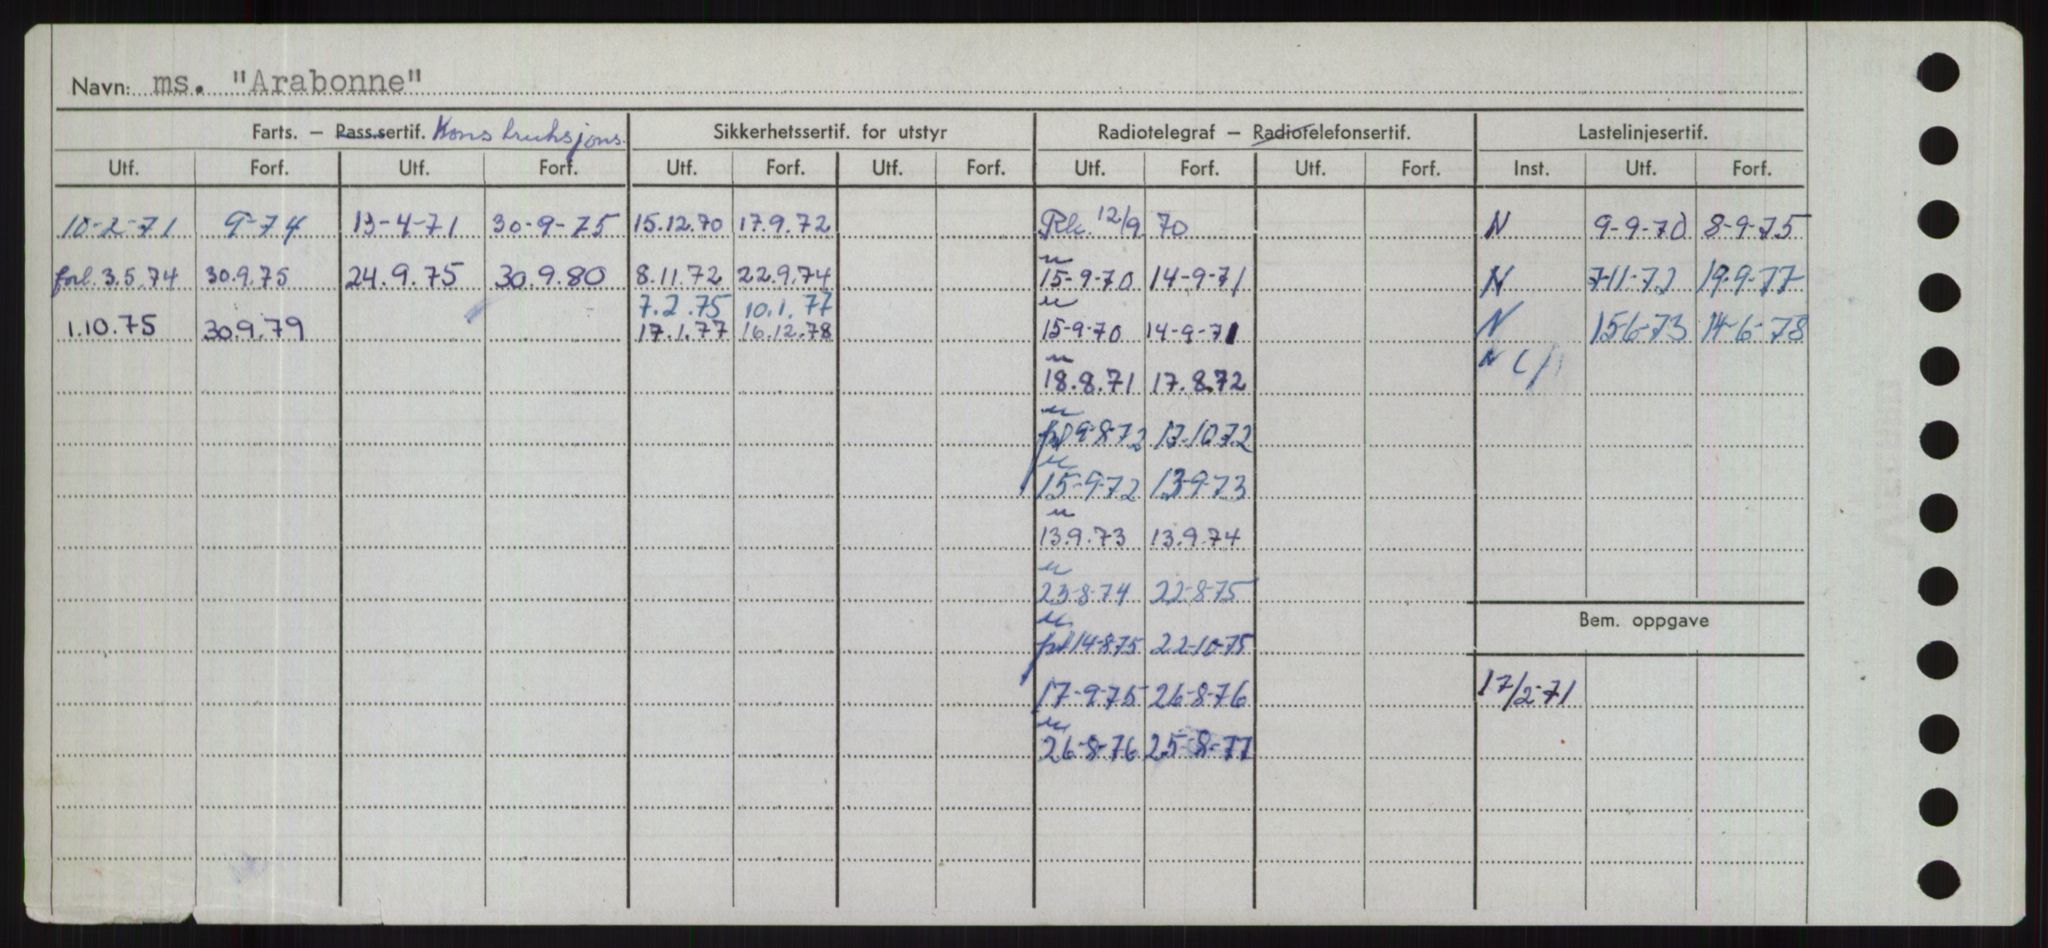 Navn: ms. "Arabonne"
Farts. – Pass.sertif. Konstruksjons. Sikkerhetssertif. for utstyr Radiotelegraf – Radiotelefonsertif. Lastelinjesertif.
Utf. Forf. Utf. Forf. Utf. Forf. Utf. Forf. Utf. Forf. Utf. Forf. Inst. Utf. Forf.
10-2-71 9-74 13-4-71 30-9-75 15.12.70 17.9.72 Rk. 12/9 70 N 9-9-70 8-9-75
forl. 3.5.74 30.9.75 24.9.75 30.9.80 8.11.72 22.9.74 15-9-70 14-9-71 N 7-11-72 19.9-77
7.2.75 10.1.77
1.10.75 30.9.79 17.1.77 16.12.78 15-9-70 14-9-71 N 15-6-73 14-6-78
N
18.8.71 17.8.72
9-8-72 17-10-72
15-9-72 13-9-73
13.9.73 13.9.74
23-8-74 22-8-75
Bem. oppgave
14-8-75 22-10-75
17-9-75 26-8-76 17/2-71
26-8-76 25-8-77